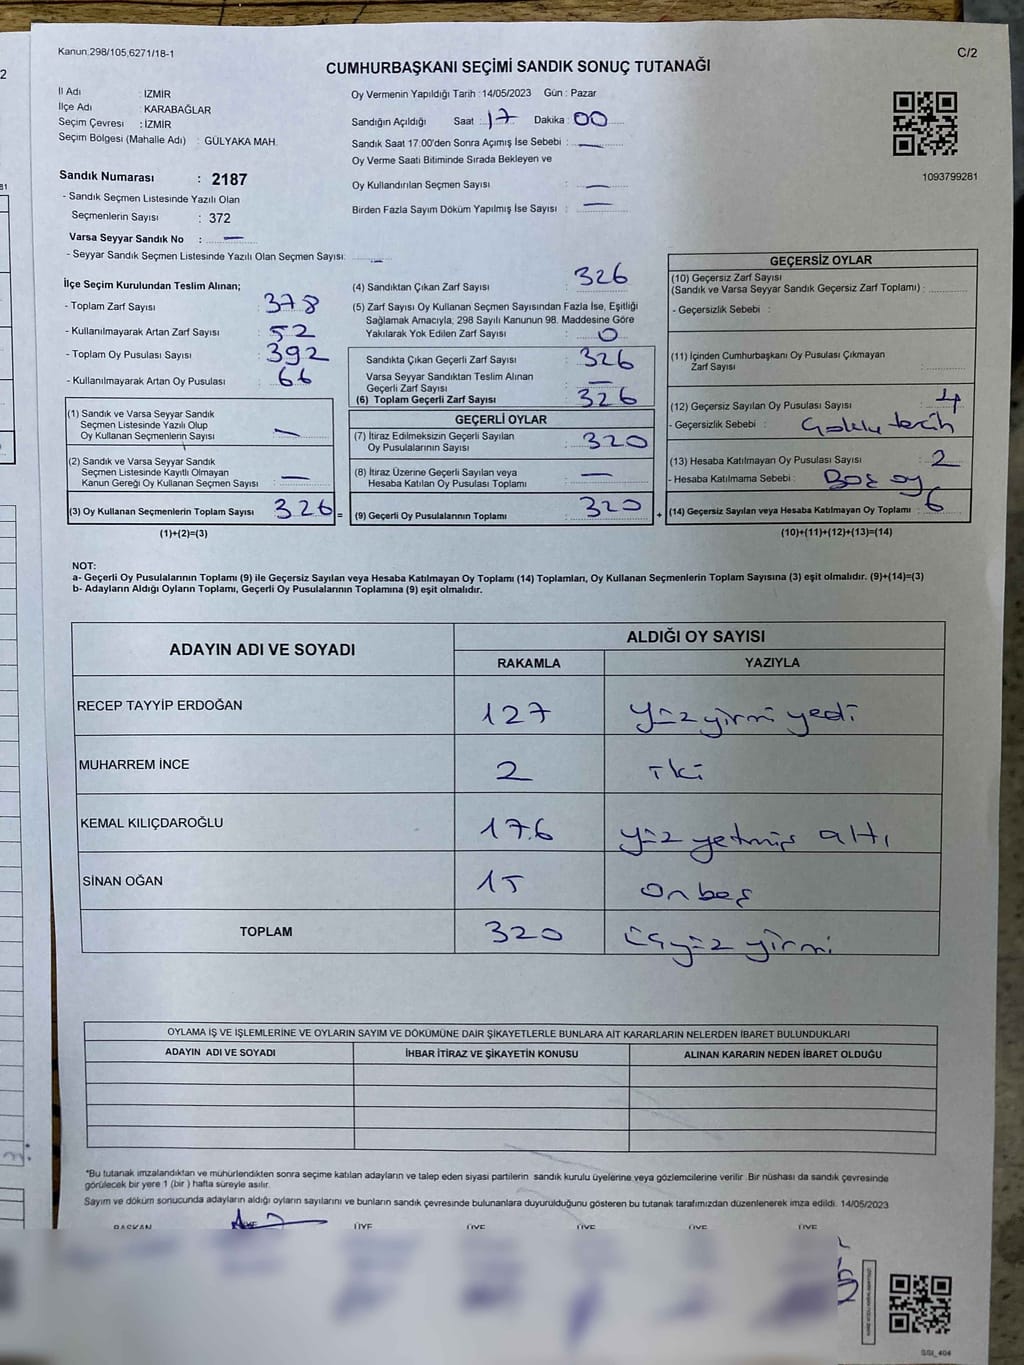 Kanun:298/105,6271/18-1
C/2
CUMHURBAŞKANI SEÇİMİ SANDIK SONUÇ TUTANAĞI
İl Adı : İZMİR
İlçe Adı : KARABAĞLAR
Seçim Çevresi : İZMİR
Seçim Bölgesi (Mahalle Adı) : GÜLYAKA MAH.
Oy Vermenin Yapıldığı Tarih : 14/05/2023 Gün : Pazar
Sandığın Açıldığı Saat : 17 Dakika : 00
Sandık Saat 17:00'den Sonra Açımış İse Sebebi : —
Oy Verme Saati Bitiminde Sırada Bekleyen ve
Oy Kullandırılan Seçmen Sayısı : —
Birden Fazla Sayım Döküm Yapılmış İse Sayısı : —
1093799281
Sandık Numarası : 2187
- Sandık Seçmen Listesinde Yazılı Olan
Seçmenlerin Sayısı : 372
Varsa Seyyar Sandık No : —
- Seyyar Sandık Seçmen Listesinde Yazılı Olan Seçmen Sayısı: —
İlçe Seçim Kurulundan Teslim Alınan;
- Toplam Zarf Sayısı : 378
- Kullanılmayarak Artan Zarf Sayısı : 52
- Toplam Oy Pusulası Sayısı : 392
- Kullanılmayarak Artan Oy Pusulası : 66
(1) Sandık ve Varsa Seyyar Sandık
Seçmen Listesinde Yazılı Olup
Oy Kullanan Seçmenlerin Sayısı : —
(2) Sandık ve Varsa Seyyar Sandık
Seçmen Listesinde Kayıtlı Olmayan
Kanun Gereği Oy Kullanan Seçmen Sayısı : —
(3) Oy Kullanan Seçmenlerin Toplam Sayısı 326 =
(1)+(2)=(3)
(4) Sandıktan Çıkan Zarf Sayısı : 326
(5) Zarf Sayısı Oy Kullanan Seçmen Sayısından Fazla İse, Eşitliği
Sağlamak Amacıyla, 298 Sayılı Kanunun 98. Maddesine Göre
Yakılarak Yok Edilen Zarf Sayısı : 0
Sandıkta Çıkan Geçerli Zarf Sayısı : 326
Varsa Seyyar Sandıktan Teslim Alınan
Geçerli Zarf Sayısı : —
(6) Toplam Geçerli Zarf Sayısı : 326
GEÇERLİ OYLAR
(7) İtiraz Edilmeksizin Geçerli Sayılan
Oy Pusulalarının Sayısı : 320
(8) İtiraz Üzerine Geçerli Sayılan veya
Hesaba Katılan Oy Pusulası Toplamı : —
(9) Geçerli Oy Pusulalarının Toplamı : 320 +
GEÇERSİZ OYLAR
(10) Geçersiz Zarf Sayısı
(Sandık ve Varsa Seyyar Sandık Geçersiz Zarf Toplamı) :
- Geçersizlik Sebebi :
(11) İçinden Cumhurbaşkanı Oy Pusulası Çıkmayan
Zarf Sayısı :
(12) Geçersiz Sayılan Oy Pusulası Sayısı : 4
- Geçersizlik Sebebi : Çoklu tercih
(13) Hesaba Katılmayan Oy Pusulası Sayısı : 2
- Hesaba Katılmama Sebebi : Boş oy
(14) Geçersiz Sayılan veya Hesaba Katılmayan Oy Toplamı : 6
(10)+(11)+(12)+(13)=(14)
NOT:
a- Geçerli Oy Pusulalarının Toplamı (9) ile Geçersiz Sayılan veya Hesaba Katılmayan Oy Toplamı (14) Toplamları, Oy Kullanan Seçmenlerin Toplam Sayısına (3) eşit olmalıdır. (9)+(14)=(3)
b- Adayların Aldığı Oyların Toplamı, Geçerli Oy Pusulalarının Toplamına (9) eşit olmalıdır.
ADAYIN ADI VE SOYADI ALDIĞI OY SAYISI
RAKAMLA YAZIYLA
RECEP TAYYİP ERDOĞAN 127 yüz yirmi yedi
MUHARREM İNCE 2 iki
KEMAL KILIÇDAROĞLU 176 yüz yetmiş altı
SİNAN OĞAN 15 onbeş
TOPLAM 320 üçyüz yirmi
OYLAMA İŞ VE İŞLEMLERİNE VE OYLARIN SAYIM VE DÖKÜMÜNE DAİR ŞİKAYETLERLE BUNLARA AİT KARARLARIN NELERDEN İBARET BULUNDUKLARI
ADAYIN ADI VE SOYADI İHBAR İTİRAZ VE ŞİKAYETİN KONUSU ALINAN KARARIN NEDEN İBARET OLDUĞU
*Bu tutanak imzalandıktan ve mühürlendikten sonra seçime katılan adayların ve talep eden siyasi partilerin sandık kurulu üyelerine veya gözlemcilerine verilir. Bir nüshası da sandık çevresinde
görülecek bir yere 1 (bir ) hafta süreyle asılır.
Sayım ve döküm sonucunda adayların aldığı oyların sayılarını ve bunların sandık çevresinde bulunanlara duyurulduğunu gösteren bu tutanak tarafımızdan düzenlenerek imza edildi. 14/05/2023
BAŞKAN ÜYE ÜYE ÜYE ÜYE ÜYE ÜYE
SSI_404